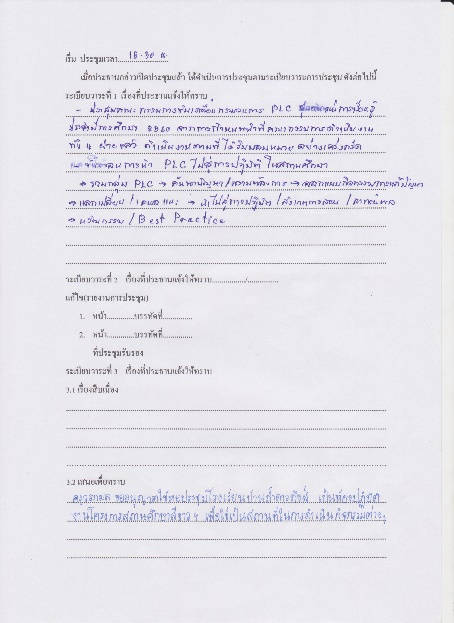 เริ่ม ประชุมเวลา 15.30 น.
เมื่อประธานกล่าวเปิดประชุมแล้ว ได้ดำเนินการประชุมตามระเบียบวาระการประชุม ดังต่อไปนี้
ระเบียบวาระที่ 1 เรื่องที่ประธานแจ้งให้ทราบ
- ประชุมคณะกรรมการขับเคลื่อนกระบวนการ PLC
ประจำปีการศึกษา 2560 จากการกำหนดหน้าที่คณะกรรมการดำเนินงาน
ทั้ง 4 ฝ่ายแล้ว ดำเนินงานตามที่ได้รับมอบหมายอย่างเคร่งครัด
การนำ PLC ไปสู่การปฏิบัติในสถานศึกษา
→ รวมกลุ่ม PLC → ค้นหาปัญหา/ความต้องการ → ออกแบบกิจกรรม/
→ แลกเปลี่ยน/เสนอแนะ → นำไปสู่การปฏิบัติ/สังเกตการสอน/
→ นวัตกรรม/Best Practice
ระเบียบวาระที่ 2 เรื่องที่ประธานแจ้งให้ทราบ............/............
แก้ไข(รายงานการประชุม)
1. หน้า............บรรทัดที่............
2. หน้า............บรรทัดที่............
ที่ประชุมรับรอง
ระเบียบวาระที่ 3 เรื่องที่ประธานแจ้งให้ทราบ
3.1 เรื่องสืบเนื่อง
3.2 เสนอเพื่อทราบ
ขออนุญาตใช้หอประชุมโรงเรียน
งานโครงการสถานศึกษาสีขาว ฯ เพื่อใช้เป็นสถานที่ในการดำเนินกิจกรรมต่างๆ